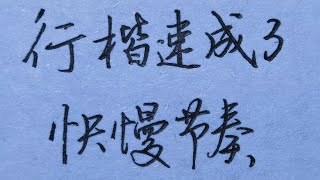 行楷速成3
快慢节奏